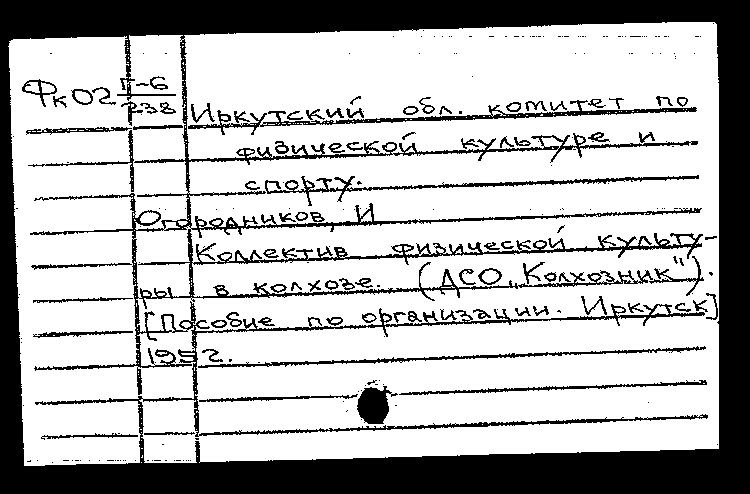 Фк02 Г-6/238
Иркутский обл. комитет по
физической культуре и
спорту.
Огородников, И
Коллектив физической культу-
ры в колхозе. (ДСО „Колхозник").
[Пособие по организации. Иркутск]
1952.